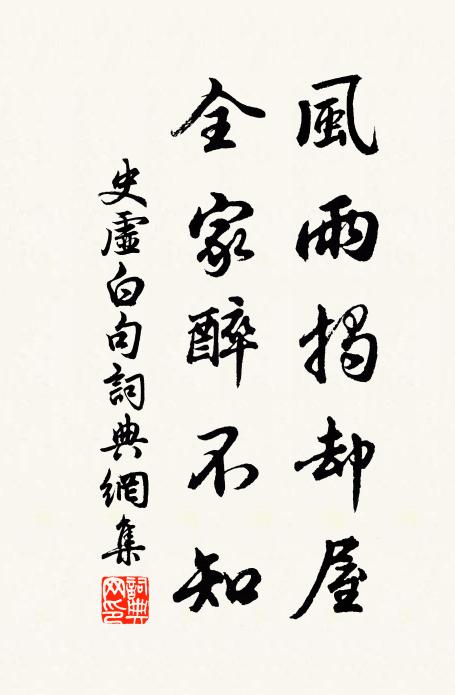 風雨揭却屋
全家醉不知
史虛白句詞典網集
詞典網印